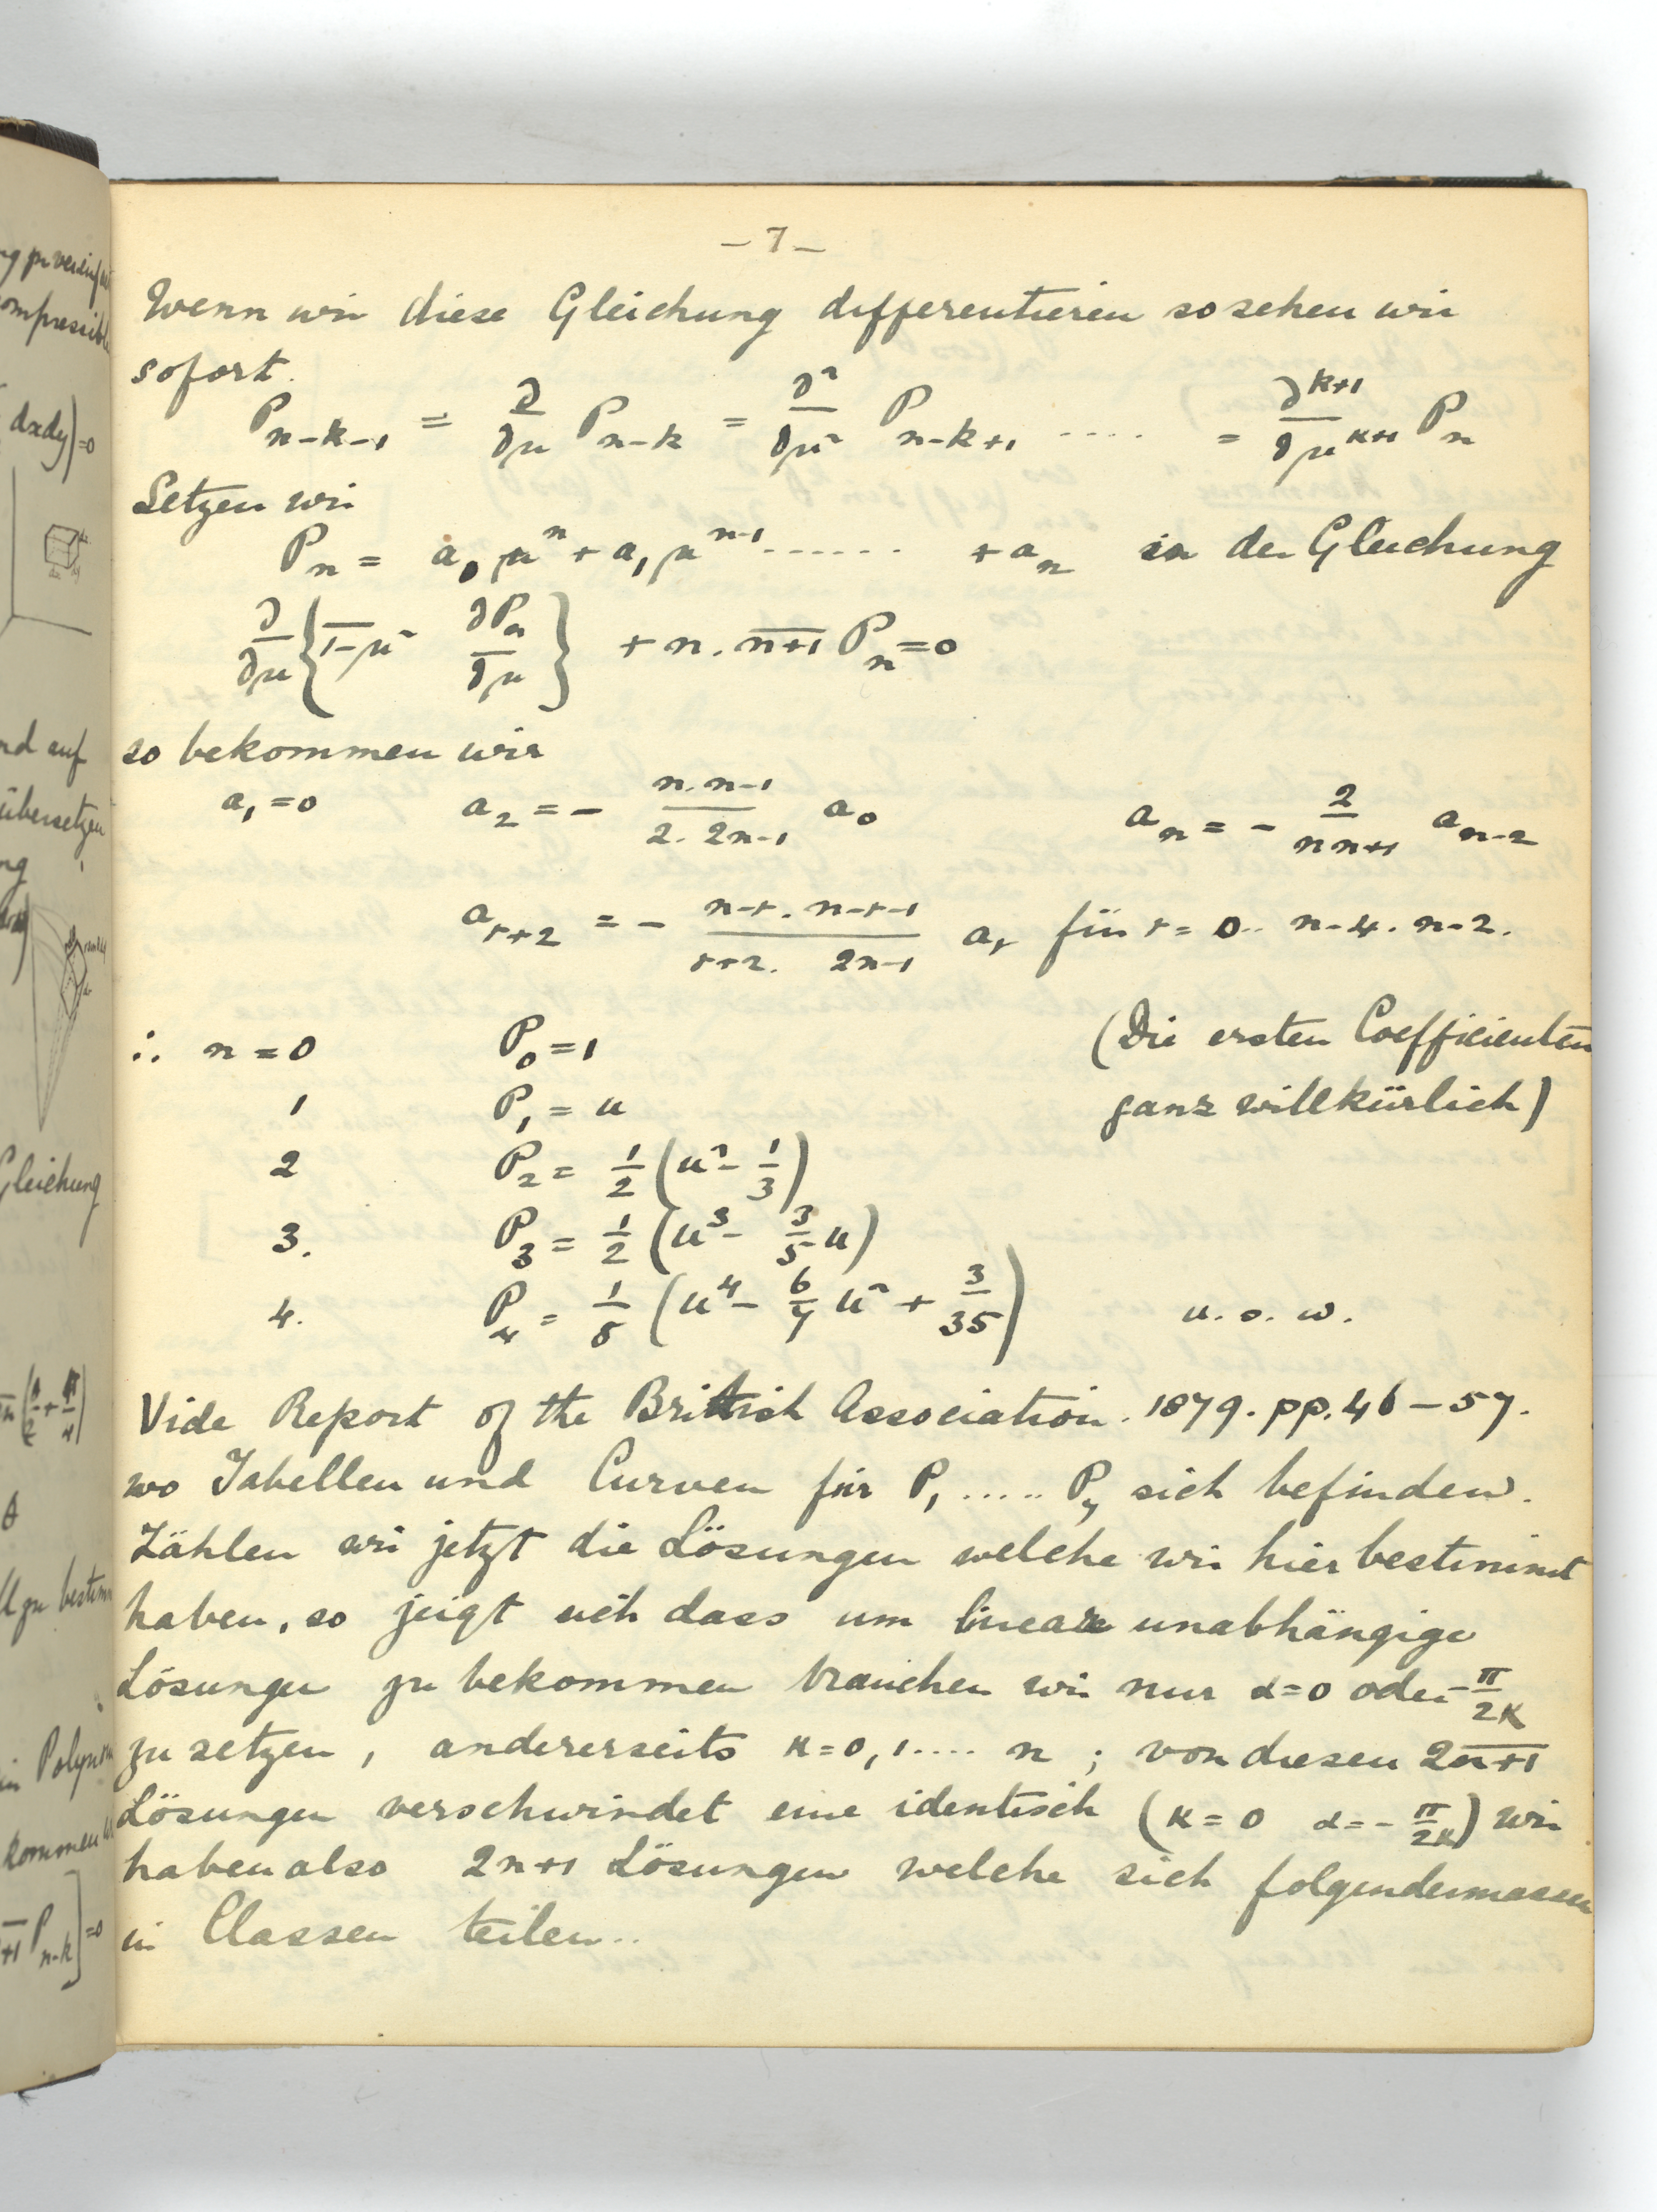 – 7 –
Wenn wir diese Gleichung differentieren so sehen wir
sofort.
P_{n-k-1} = ∂/∂μ P_{n-k} = ∂²/∂μ² P_{n-k+1} ..... = ∂^{k+1}/∂μ^{k+1} P_n
Setzen wir
P_n = a_0 μ^n + a_1 μ^{n-1} ...... + a_n in der Gleichung
∂/∂μ { \overline{1-μ²} ∂P_n/∂μ } + n. \overline{n+1} P_n = 0
so bekommen wir
a_1 = 0 a_2 = - (n. n-1)/(2. 2n-1) a_0 a_n = - 2/(n n+1) a_{n-2}
a_{r+2} = - (n-r. n-r-1)/(r+2. 2n-1) a_r für r = 0.. n-4. n-2.
∴ n = 0 P_0 = 1 (Die ersten Coefficienten
1 P_1 = u ganz willkürlich)
2 P_2 = 1/2 (u² - 1/3)
3. P_3 = 1/2 (u³ - 3/5 u)
4. P_4 = 1/8 (u⁴ - 6/7 u² + 3/35) u. s. w.
Vide Report of the British Association. 1879. pp. 46 – 57.
wo Tabellen und Curven für P_1 ..... P_7 sich befinden.
Zählen wir jetzt die Lösungen welche wir hier bestimmt
haben, so zeigt sich dass um lineare unabhängige
Lösungen zu bekommen brauchen wir nur α=0 oder -π/2K
zu setzen, andererseits K=0, 1.... n ; von diesen 2\overline{n+1}
Lösungen verschwindet eine identisch (K = 0 α = - π/2K) wir
haben also 2n+1 Lösungen welche sich folgendermassen
in Classen teilen..